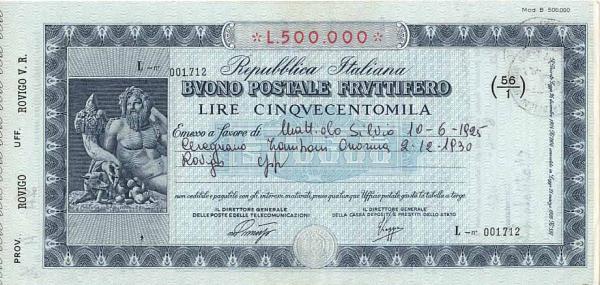 Mod. B 500.000
* L.500.000 *
L -nº 001.712
Repubblica Italiana
BVONO POSTALE FRVTTIFERO
(56/1)
LIRE CINQVECENTOMILA
Emesso a favore di Silvio 10-6-1925
Ceregnano 2-12-1930
Rovigo
non cedibile e pagabile con gli interessi maturati, presso qualunque Ufficio postale, giusta la tabella a tergo.
IL DIRETTORE GENERALE
DELLE POSTE E DELLE TELECOMUNICAZIONI
IL DIRETTORE GENERALE
DELLA CASSA DEPOSITI E PRESTITI DELLO STATO
L -nº 001.712
PROV. ROVIGO UFF. ROVIGO V. R.